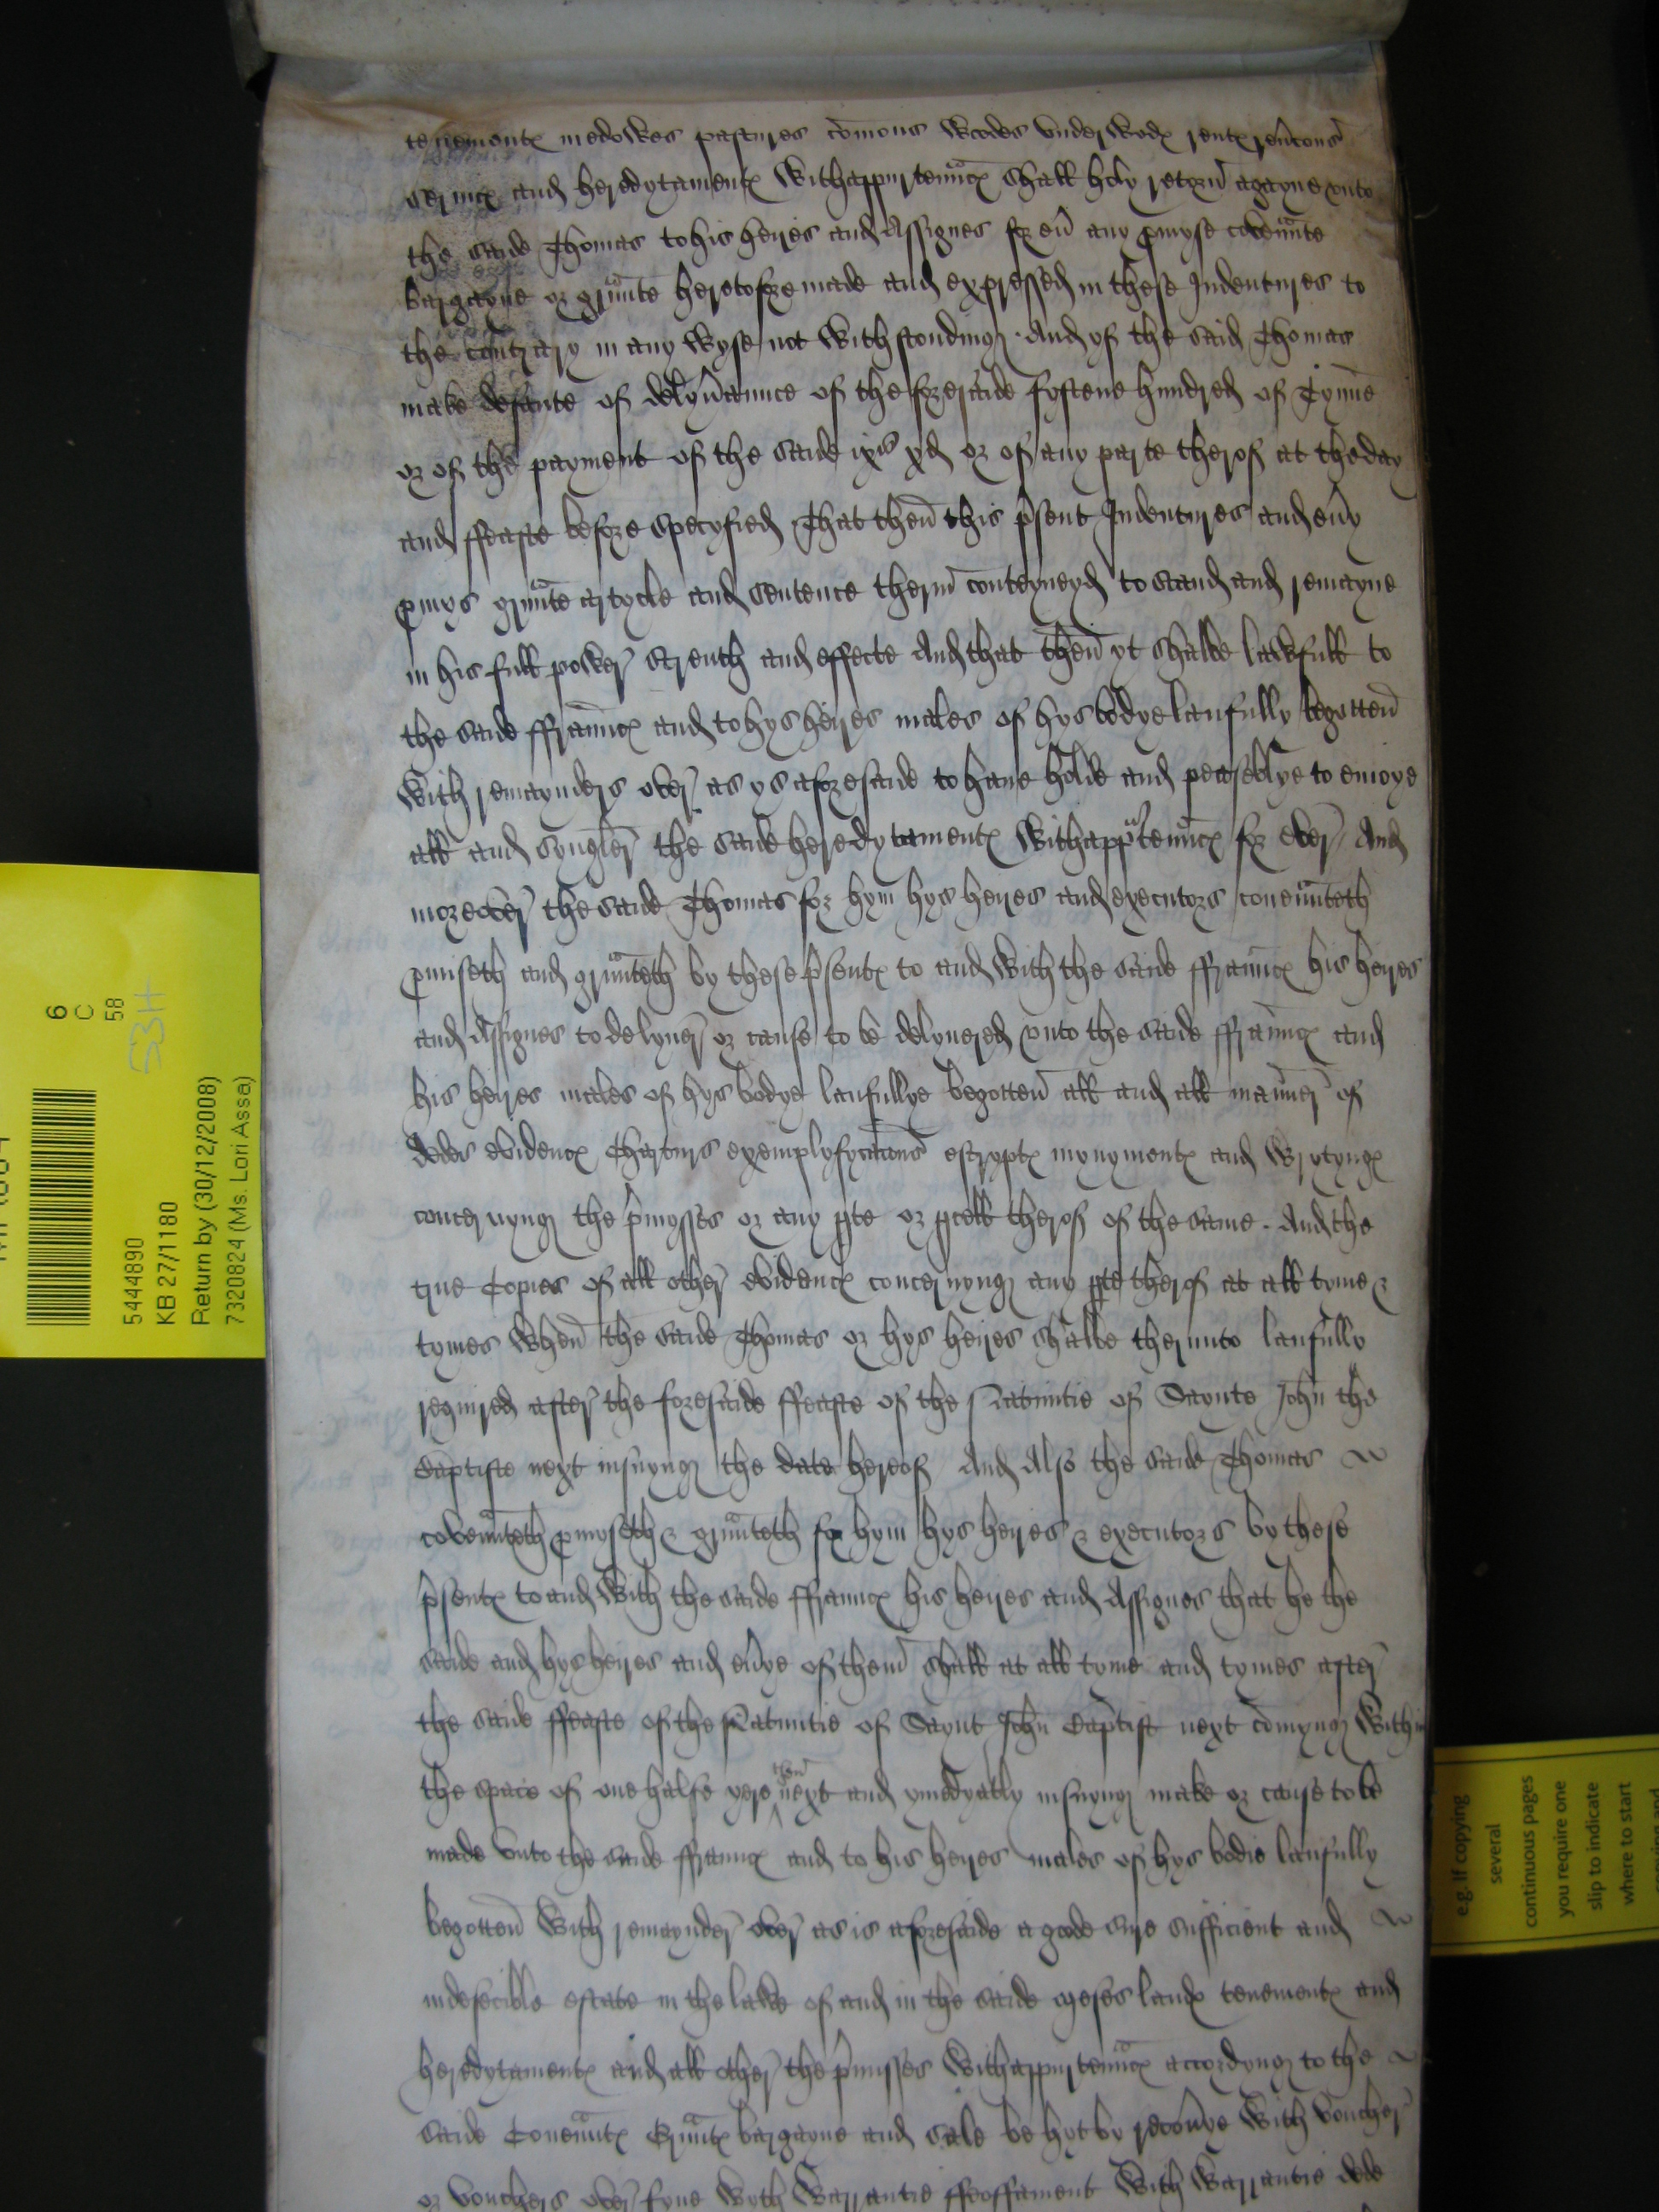 tenementx medowes pastures comons Woodes underwodx rentx reuĉons
seruicx and heredytamentx Withappurtenñcx shall holy retorn agayne vnto
the saide Thomas to his heires and Assignes for eũ any pmyse covenñte
bargayne or grañte heretofore made and expressed in these Indentures to
the contrary in any Wyse not Withstondinge And yf the said Thomas
make defaute of delyũaunce of the foresaide fyftene hundred of Tynne
or of the payment of the saide ixli xd or of any parte therof at the day
and ffeaste before specyfied That then this p̃sent Indentures and eũy
pmys grañte artycle and sentence therin conteyneyd to stand and remayne
in his full power strenth and effecte And that then yt shalbe lawfull to
the saide ffrauncx and to hys heires males of hys bodye laufully begotten
With remaynders over as ys aforesaide to haue holde and peaseblye to enioye
all and syngler the saide heredytamentx Withapptenñcx for ever And
moreover the saide Thomas for hym hys heires and executors couenñteth
pmiseth and grañteth by these p̃sentx to and With the saide ffrauncx his heires
and Assignes to delyuer or cause to be delyuered vnto the saide ffrauncx and
his heires males of hys bodye laufullye begotten all and all manner of
dedes evidencx Charturs exemplyfycacions escryptx mynymentx and Wrytyngx
concernyng the p̃mysses or any pte or pcell therof of the same . And the
true Copies of all other evidencx concernyng any pte therof at all tyme &
tymes When the saide Thomas or hys heires shalbe therunto laufully
required after the foresaide ffeaste of the Natiuitie of Saynte John the
Baptiste next insuyng the date hereof And Also the saide Thomas
covenñteth pmyseth & grañteth for hym hys heires & executors by these
p̃sentx to and With the saide ffrauncx his heires and Assignes that he the
saide and hys heires and eũye of them shall at all tyme and tymes after
the saide ffeaste of the Natiuitie of Saynt John Baptist next comyng With in
the space of one halfe yere then next and ymedyatly insuyng make or cause to be
made vnto the saide ffrauncx and to his heires males of hys bodie laufully
begotten With remaynder over as is aforesaide a goode sure sufficient and
indefecible estate in the lawe of and in the saide meses landx tenementx and
heredytamentx and all other the p̃misses Withappurtenñcx accordyng to the
saide Couenñtx Grañtx bargayne and sale be hyt by recoũye With Voucher
or Vouchers over fyne Wyth Warrantie ffeoffament With Warrantie dede
5444890
KB 27/1180
Return by (30/12/2008)
7320824 (Ms. Lori Assa)
6
C
58
53H
e.g. If copying
several
continuous pages
you require one
slip to indicate
where to start